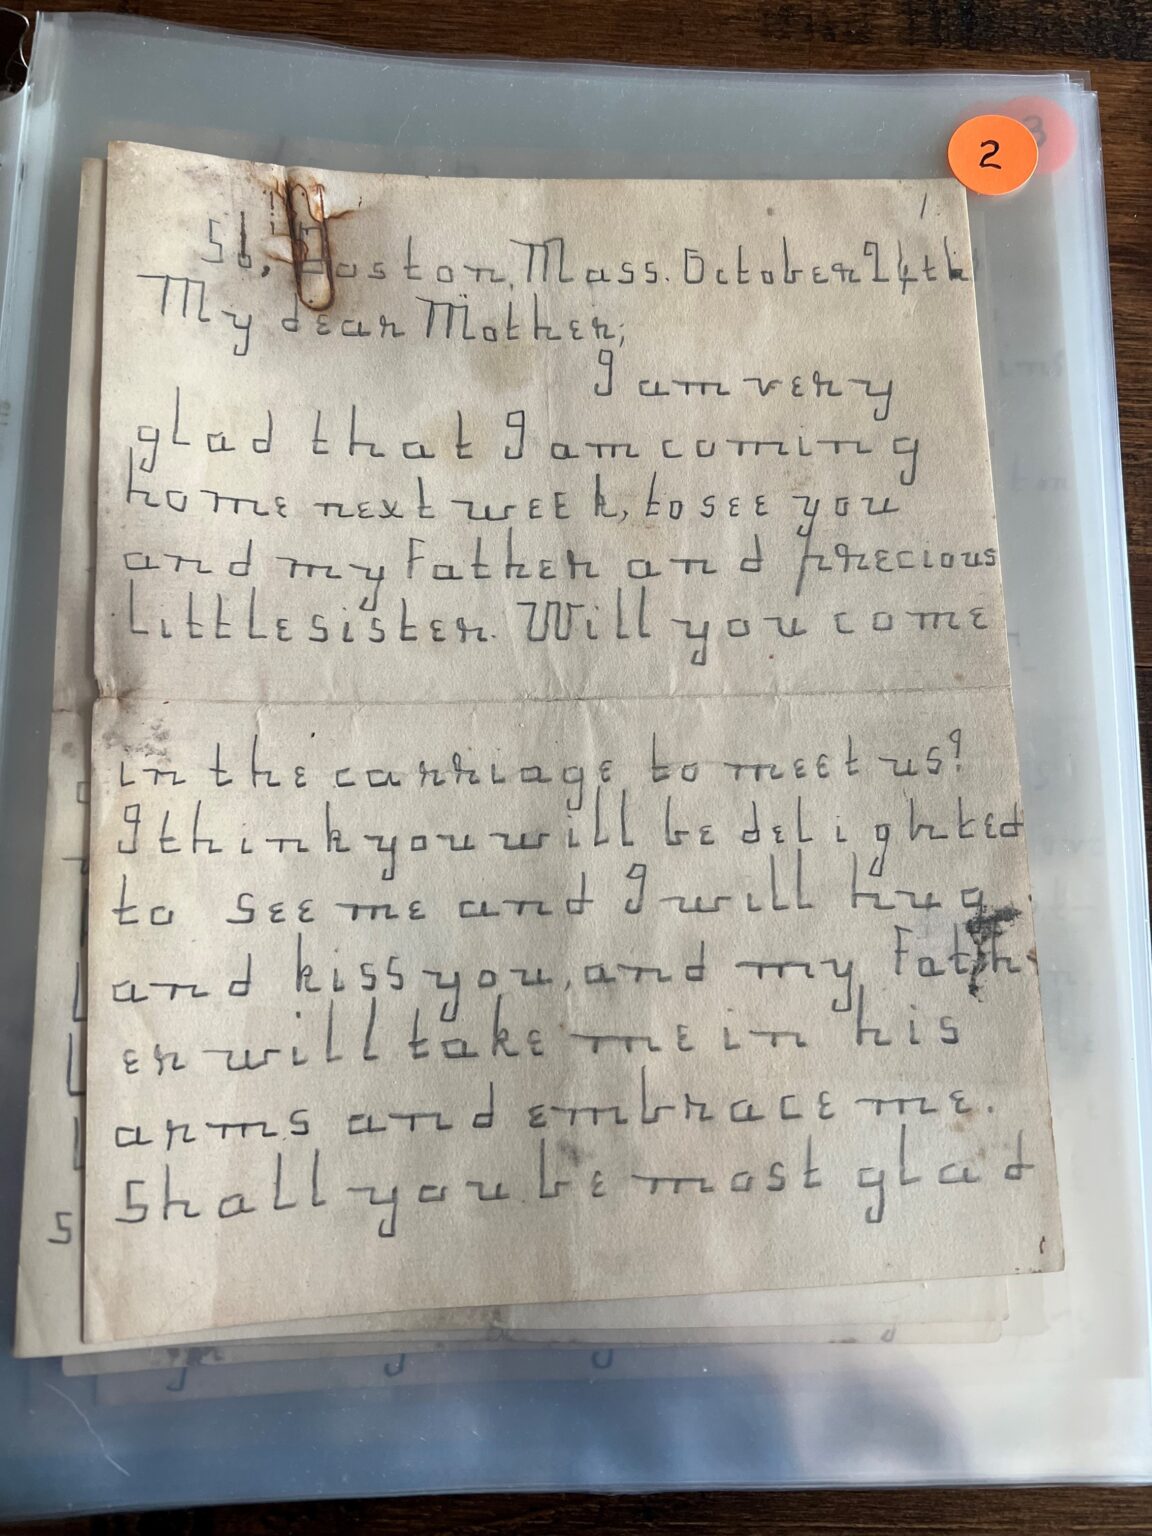 2
1.
So. Boston, Mass. October 24th
My dear Mother;
I am very
glad that I am coming
home next week, to see you
and my Father and precious
little sister. Will you come
in the carriage to meet us?
I think you will be delighted
to see me and I will hug
and kiss you, and my Fath
er will take me in his
arms and embrace me.
Shall you be most glad
S